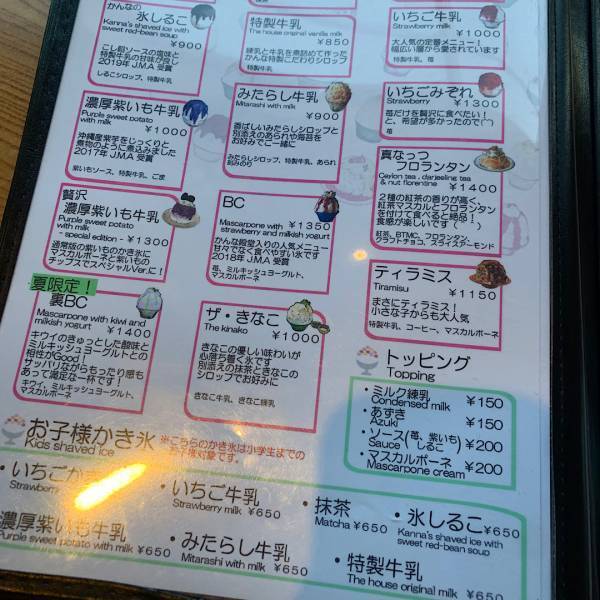 かんなの
氷しるこ
Kanna's shaved ice with
sweet red-bean soup
¥900
こし餡ソースの塩味と
特製牛乳の甘味が良し
2019年 J.M.A 受賞
しるこシロップ、特製牛乳
濃厚紫いも牛乳
Purple sweet potato
with milk
¥1000
沖縄産紫芋をじっくりと
煮物のように煮込みました
2017年 J.M.A 受賞
紫いもソース、特製牛乳、ごま
贅沢
濃厚紫いも牛乳
Purple sweet potato
with milk
- special edition -
¥1300
通常版の紫いものかき氷に
マスカルポーネと紫いもの
チップスでスペシャルVer.に!
夏限定!
裏BC
Mascarpone with kiwi and
milkish yogurt
¥1400
キウイのきゅっとした酸味と
ミルキッシュヨーグルトとの
相性がGood!
サッパリながらもったり感も
あって満足な一杯です!
キウイ、ミルキッシュヨーグルト、
マスカルポーネ
特製牛乳
The house original vanilla milk
¥850
練乳と牛乳を煮詰めて作った
かんな特製こだわりシロップ
特製牛乳
みたらし牛乳
Mitarashi with milk
¥900
香ばしいみたらしシロップと
別添えのあられや海苔を
お好みでご一緒に
みたらしシロップ、特製牛乳、あられ
刻みのり
BC
Mascarpone with
strawberry and milkish yogurt
¥1350
かんな殿堂入りの人気メニュー
甘々でなく食べやすい氷です
2018年 J.M.A 受賞
苺、ミルキッシュヨーグルト、
マスカルポーネ
ザ・きなこ
The kinako
¥1000
きなこの優しい味わいが
心落ち着く氷です
別添えの抹茶ときなこの
シロップでお好みに
きなこ牛乳、きなこ練乳
いちご牛乳
Strawberry milk
¥1000
大人気の定番メニュー!
幅広い層から愛されています
特製牛乳、苺
いちごみぞれ
Strawberry
¥1300
苺だけを贅沢に食べたい!
と、希望が多かったので(^^)
苺
真なっつ
フロランタン
Ceylon tea , darjeeling tea
& nut florentine
¥1400
2種の紅茶の香りが高く、
紅茶マスカルとフロランタン
を付けて食べると絶品!
食感が楽しい氷です(^^)
紅茶、BTMC、フロランタン、
クラントチョコ、スライスアーモンド
ティラミス
Tiramisu
¥1150
まさにティラミス!
小さな子からも大人気
特製牛乳、コーヒー、マスカルポーネ
トッピング
Topping
・ミルク練乳 ¥150
Condensed milk
・あずき ¥150
Azuki
・ソース(苺、紫いも、しるこ) ¥200
Sauce
・マスカルポーネ ¥200
Mascarpone cream
お子様かき氷
Kids shaved ice
※こちらのかき氷は小学生までの
お子様対象です。
・いちごかき
Strawberry
・いちご牛乳
Strawberry milk ¥650
・抹茶
Matcha ¥650
・氷しるこ ¥650
Kanna's shaved ice with
sweet red-bean soup
濃厚紫いも牛乳
Purple sweet potato with milk ¥650
・みたらし牛乳
Mitarashi with milk ¥650
・特製牛乳
The house original milk ¥650